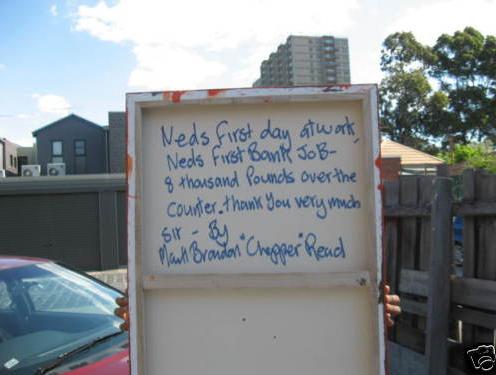 Neds First day at work,
Neds First Bank JoB-
8 thousand Pounds over the
Counter. thank You very much
sir - By
Mark Brandon "Chopper" Read